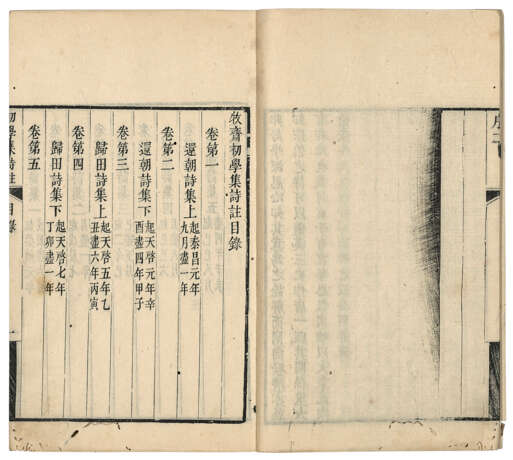 序二
牧齋初學集詩註目錄
卷第一
還朝詩集上 起泰昌元年九月盡一年
卷第二
還朝詩集下 起天啓元年辛酉盡四年甲子
卷第三
歸田詩集上 起天啓五年乙丑盡六年丙寅
卷第四
歸田詩集下 起天啓七年丁卯盡一年
卷第五
初學集詩註 目錄